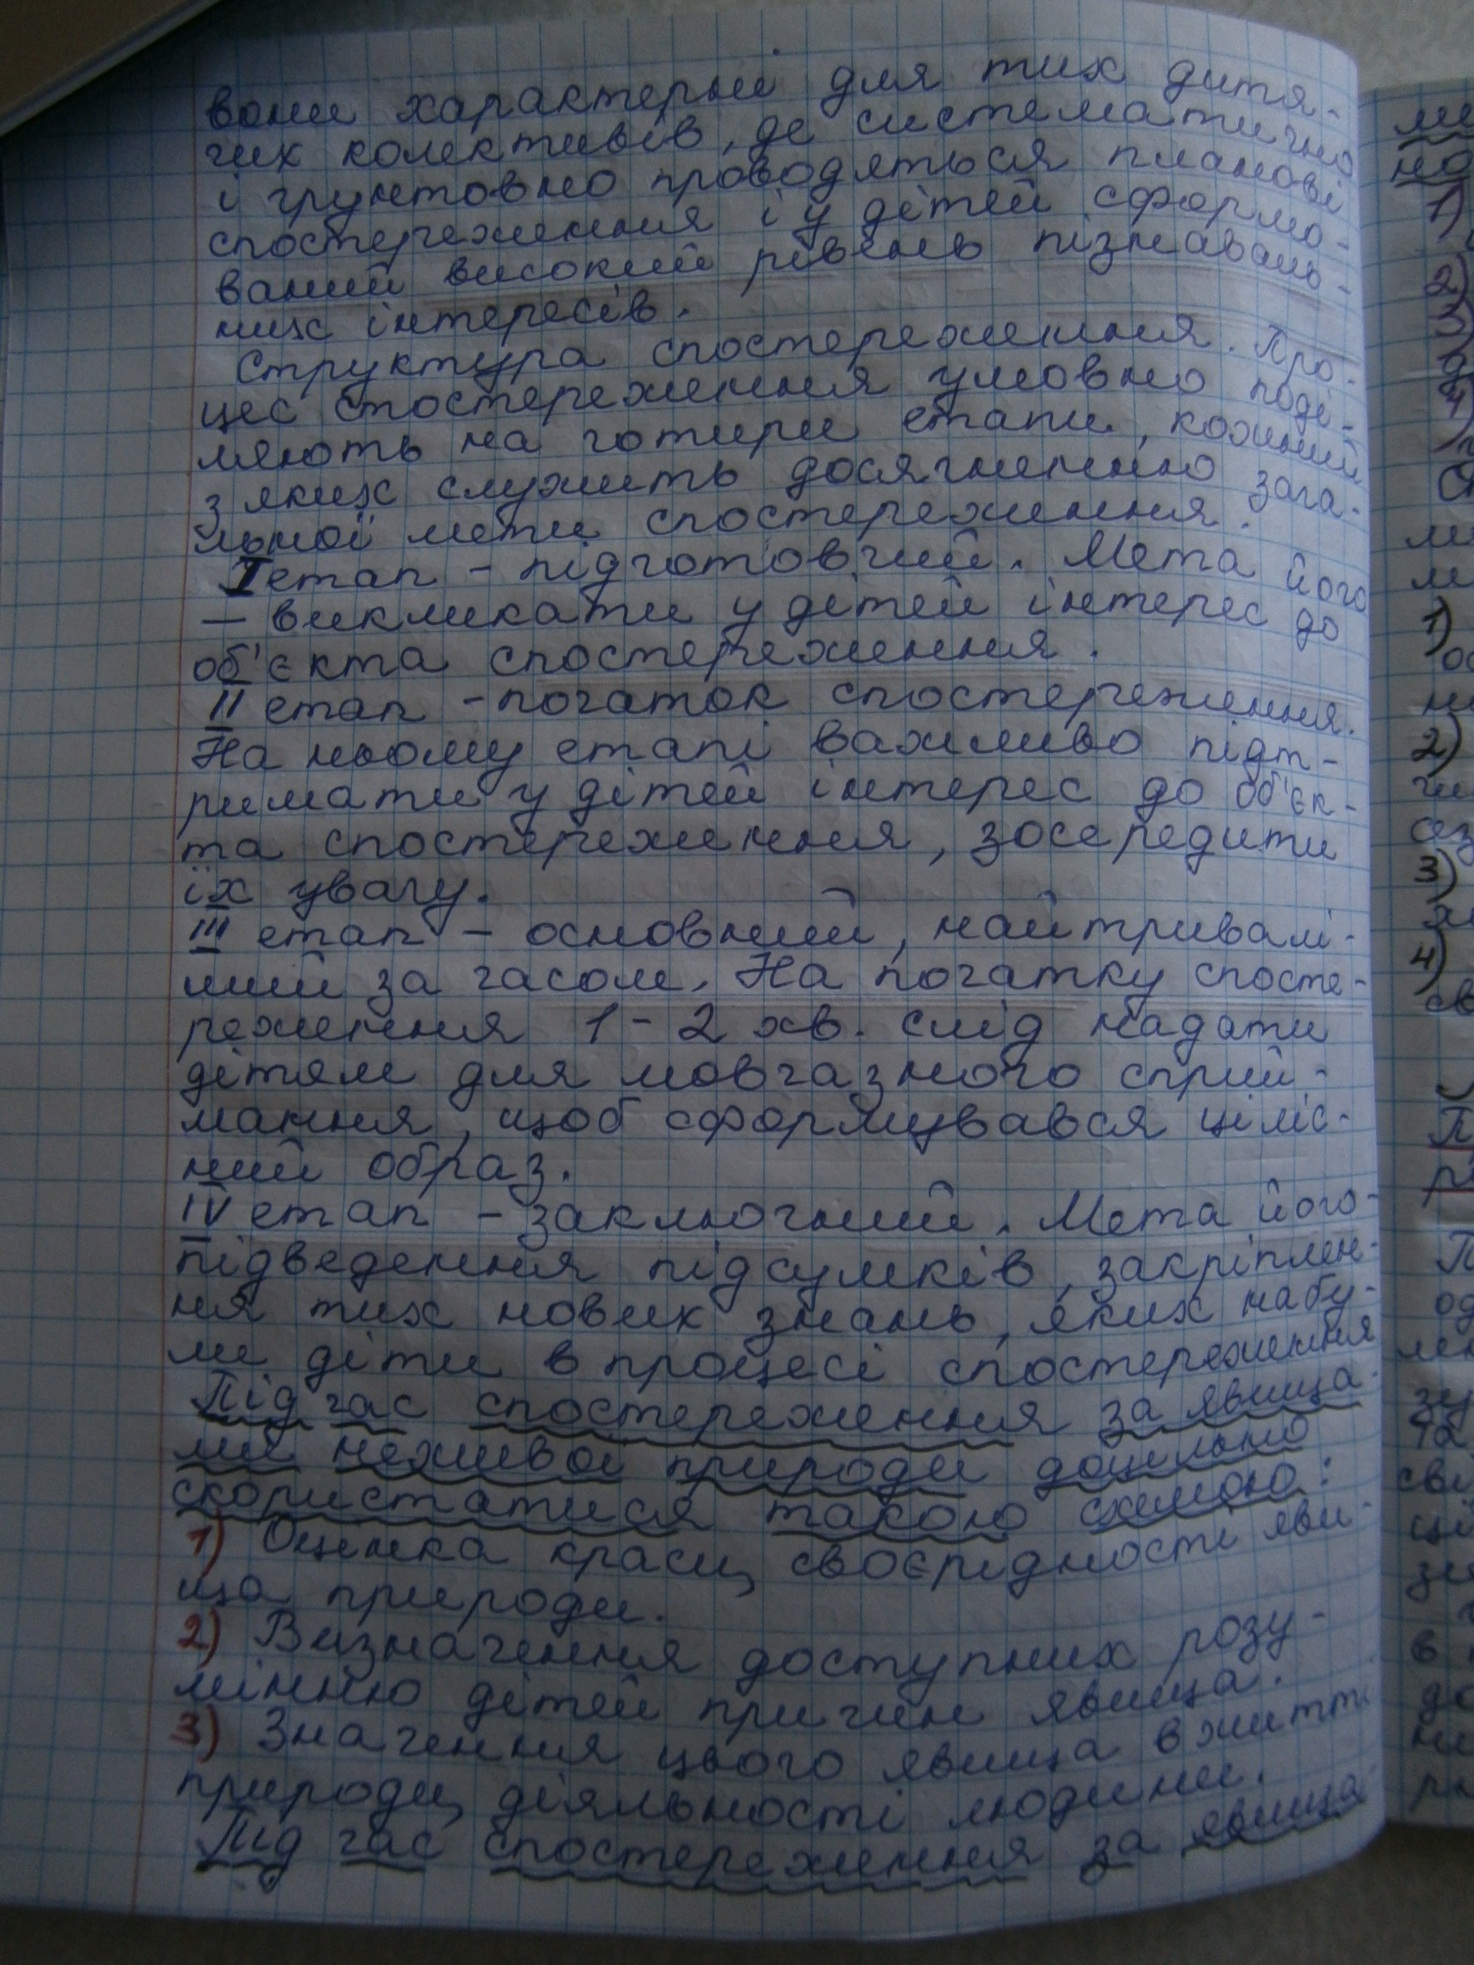 вони характерні для тих дитя-
чих колективів, де систематично
і грунтовно проводяться планові
спостереження і у дітей сформо-
ваний високий рівень пізнаваль-
них інтересів.
Структура спостереження. Про-
цес спостереження умовно поді-
ляють на чотири етапи, кожний
з яких служить досягненню зага-
льної мети спостереження.
I етап - підготовчий. Мета його
— викликати у дітей інтерес до
об'єкта спостереження.
II етап - початок спостереження.
На ньому етапі важливо підт-
римати у дітей інтерес до об'єк-
та спостереження, зосередити
їх увагу.
III етап - основний, найтривалі-
ший за часом. На початку спосте-
реження 1-2 хв. слід надати
дітям для мовчазного сприй-
мання, щоб сформувався ціліс-
ний образ.
IV етап - заключний. Мета його-
підведення підсумків, закріплен-
ня тих нових знань, яких набу-
ли діти в процесі спостереження
Під час спостереження за явища-
ми неживої природи доцільно
скористатися такою схемою:
1) Оцінка краси, своєрідності яви-
ща природи.
2) Визначення доступних розу-
мінню дітей причин явища.
3) Значення цього явища в житті
природи, діяльності людини.
Під час спостереження за явища-